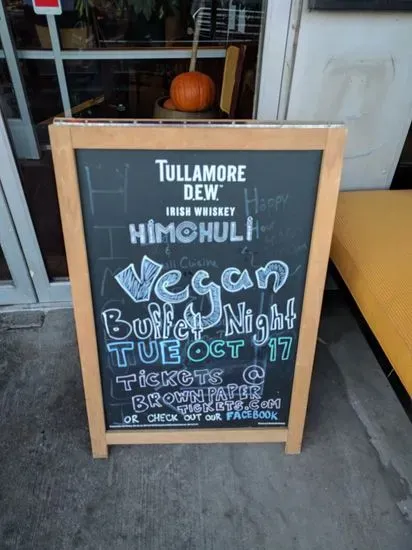 TULLAMORE
D.E.W.™
IRISH WHISKEY
HIMCHULI
Happy
Cuisine
Vegan
Buffet Night
TUE OCT 17
TICKETS @
BROWNPAPER
TICKETS.COM
OR CHECK OUT OUR FACEBOOK